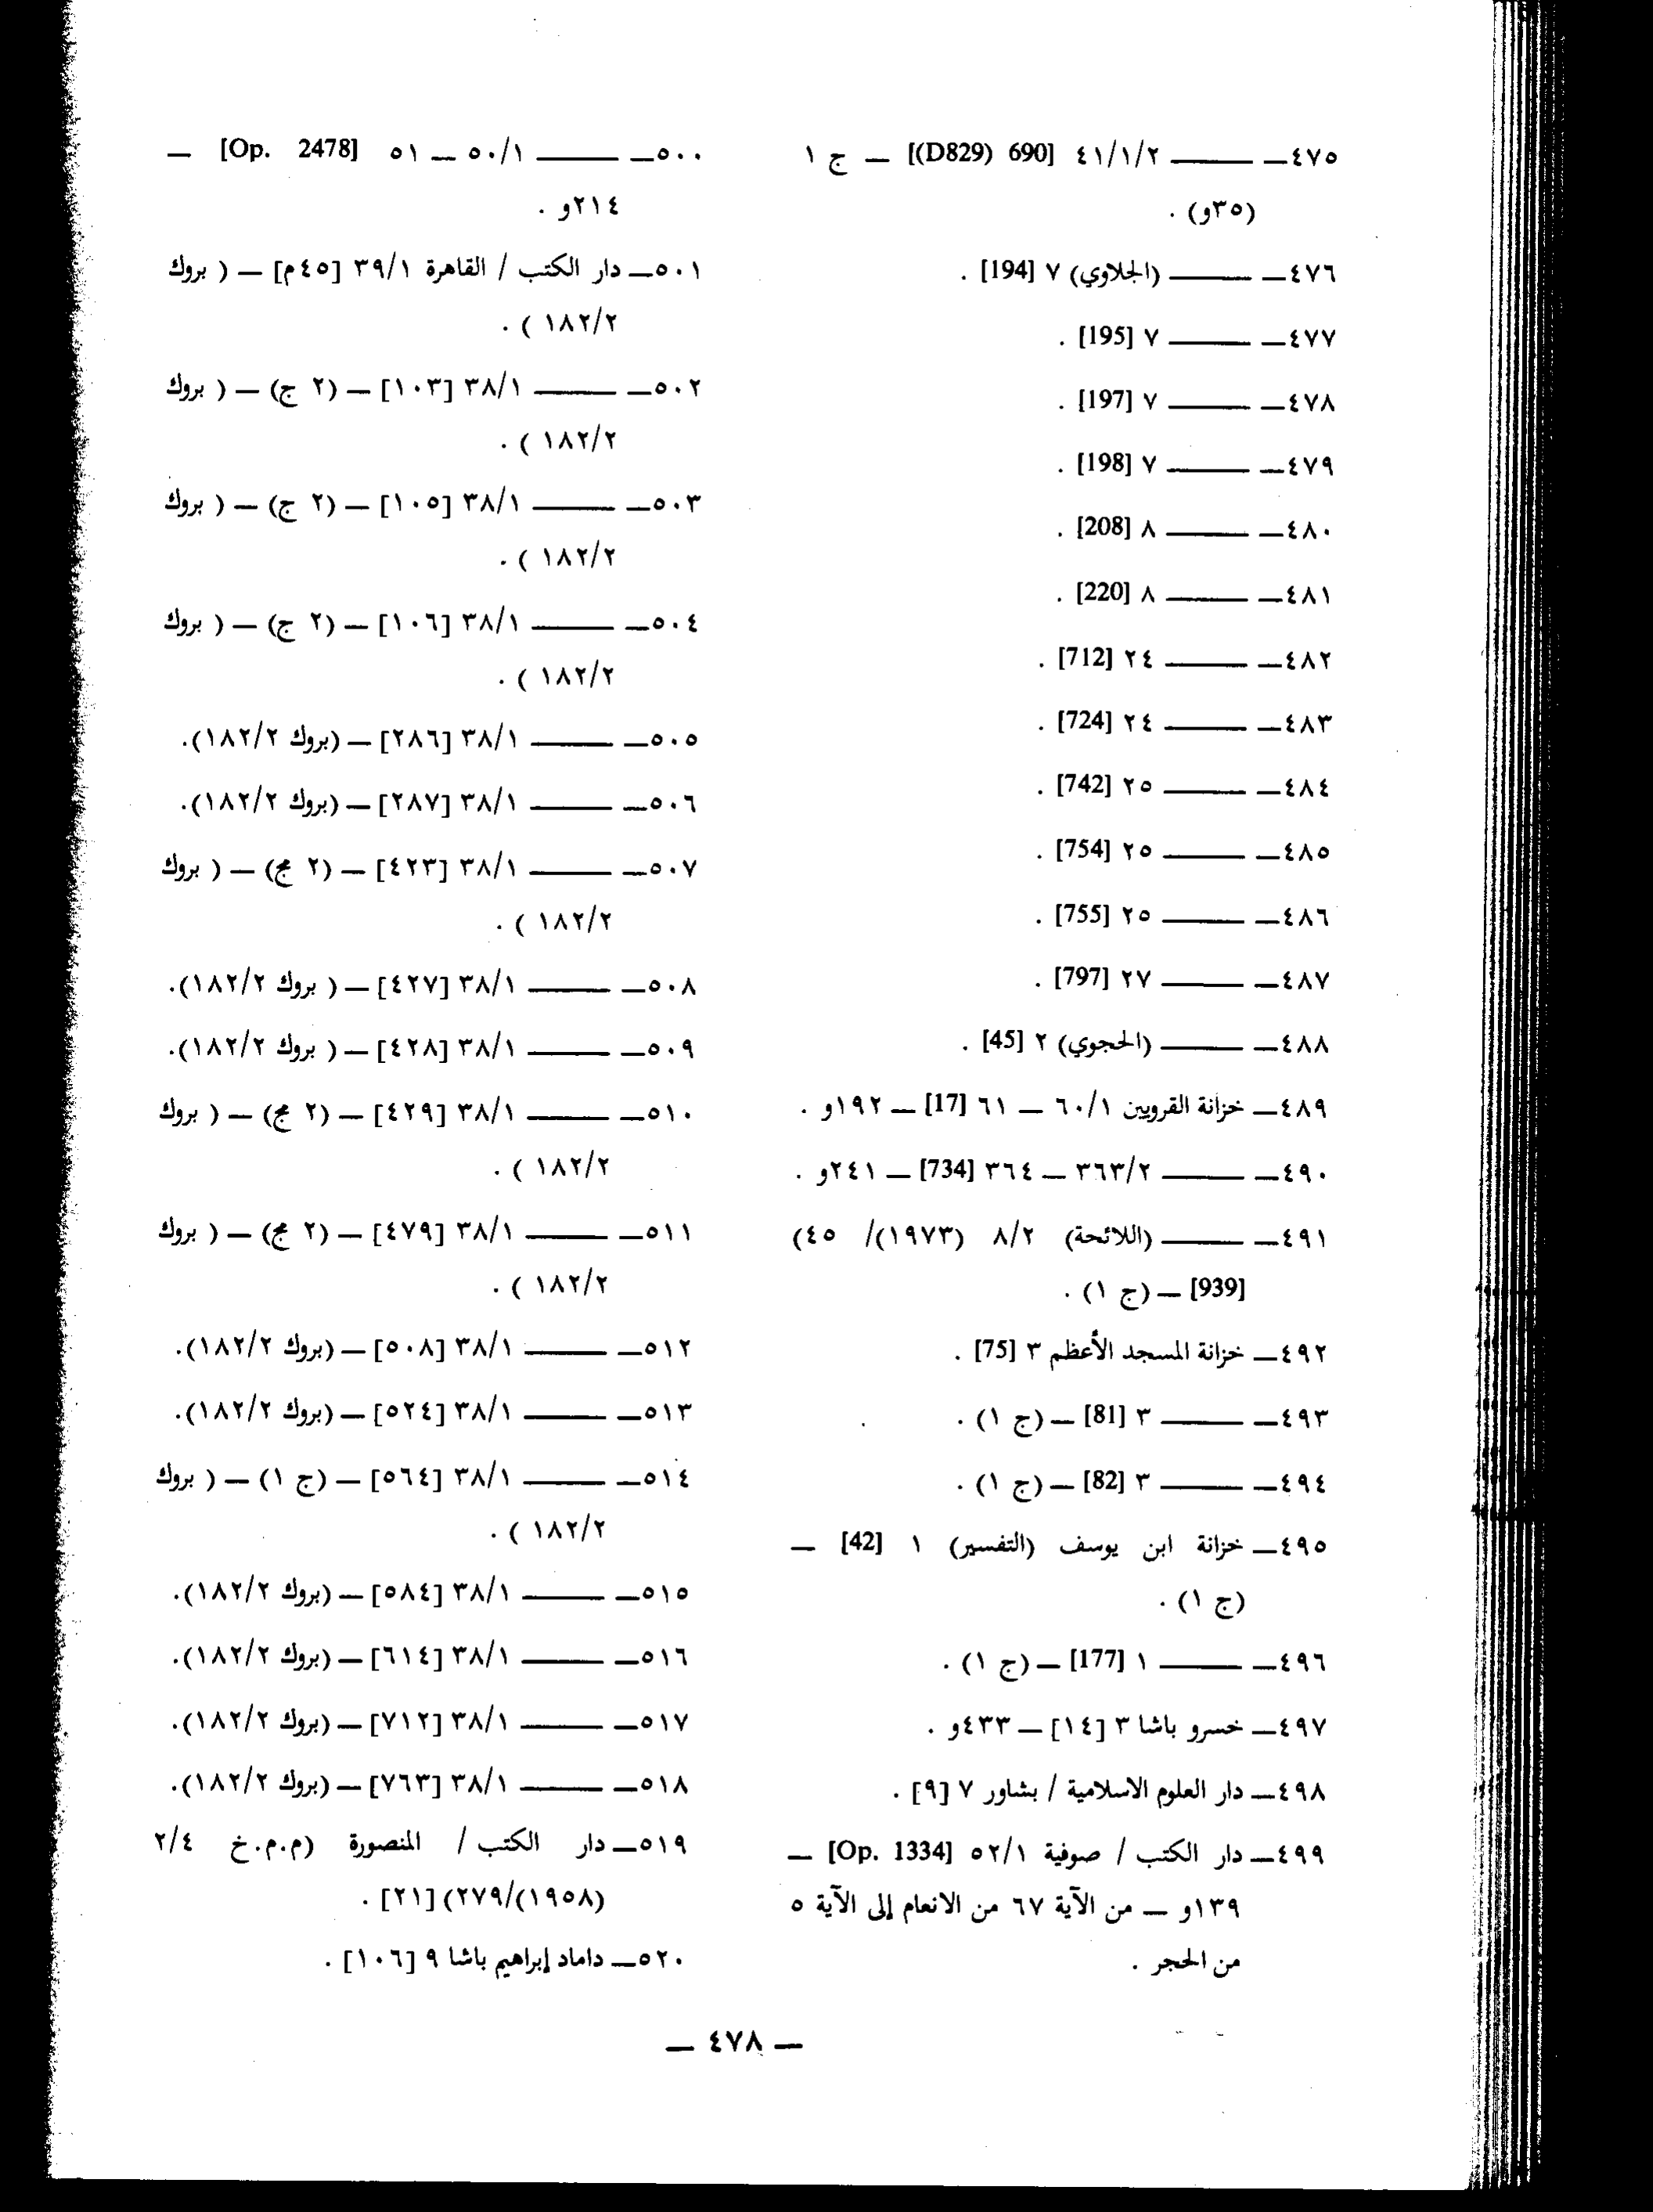 ٤٧٥ــ ــــــــ ٤١/١/٢ [690 (D829)] ــ ج ١
(٣٥و) .
٤٧٦ــ ــــــــ (الجلاوي) ٧ [194] .
٤٧٧ــ ــــــــ ٧ [195] .
٤٧٨ــ ــــــــ ٧ [197] .
٤٧٩ــ ــــــــ ٧ [198] .
٤٨٠ــ ــــــــ ٨ [208] .
٤٨١ــ ــــــــ ٨ [220] .
٤٨٢ــ ــــــــ ٢٤ [712] .
٤٨٣ــ ــــــــ ٢٤ [724] .
٤٨٤ــ ــــــــ ٢٥ [742] .
٤٨٥ــ ــــــــ ٢٥ [754] .
٤٨٦ــ ــــــــ ٢٥ [755] .
٤٨٧ــ ــــــــ ٢٧ [797] .
٤٨٨ــ ــــــــ (الحجوي) ٢ [45] .
٤٨٩ــ خزانة القرويين ٦٠/١ ــ ٦١ [17] ــ ١٩٢و .
٤٩٠ــ ــــــــ ٣٦٣/٢ ــ ٣٦٤ [734] ــ ٢٤١و .
٤٩١ــ ــــــــ (اللائحة) ٨/٢ (١٩٧٣)/ ٤٥)
[939] ــ (ج ١) .
٤٩٢ــ خزانة المسجد الأعظم ٣ [75] .
٤٩٣ــ ــــــــ ٣ [81] ــ (ج ١) .
٤٩٤ــ ــــــــ ٣ [82] ــ (ج ١) .
٤٩٥ــ خزانة ابن يوسف (التفسير) ١ [42] ــ
(ج ١) .
٤٩٦ــ ــــــــ ١ [177] ــ (ج ١) .
٤٩٧ــ خسرو باشا ٣ [١٤] ــ ٤٣٣و .
٤٩٨ــ دار العلوم الاسلامية / بشاور ٧ [٩] .
٤٩٩ــ دار الكتب / صوفية ٥٢/١ [Op. 1334] ــ
١٣٩و ــ من الآية ٦٧ من الانعام إلى الآية ٥
من الحجر .
٥٠٠ــ ــــــــ ٥٠/١ ــ ٥١ [Op. 2478] ــ
٢١٤و .
٥٠١ــ دار الكتب / القاهرة ٣٩/١ [٤٥م] ــ ( بروك
١٨٢/٢ ) .
٥٠٢ــ ــــــــ ٣٨/١ [١٠٣] ــ (٢ ج) ــ ( بروك
١٨٢/٢ ) .
٥٠٣ــ ــــــــ ٣٨/١ [١٠٥] ــ (٢ ج) ــ ( بروك
١٨٢/٢ ) .
٥٠٤ــ ــــــــ ٣٨/١ [١٠٦] ــ (٢ ج) ــ ( بروك
١٨٢/٢ ) .
٥٠٥ــ ــــــــ ٣٨/١ [٢٨٦] ــ (بروك ١٨٢/٢).
٥٠٦ــ ــــــــ ٣٨/١ [٢٨٧] ــ (بروك ١٨٢/٢).
٥٠٧ــ ــــــــ ٣٨/١ [٤٢٣] ــ (٢ مج) ــ ( بروك
١٨٢/٢ ) .
٥٠٨ــ ــــــــ ٣٨/١ [٤٢٧] ــ ( بروك ١٨٢/٢).
٥٠٩ــ ــــــــ ٣٨/١ [٤٢٨] ــ ( بروك ١٨٢/٢).
٥١٠ــ ــــــــ ٣٨/١ [٤٢٩] ــ (٢ مج) ــ ( بروك
١٨٢/٢ ) .
٥١١ــ ــــــــ ٣٨/١ [٤٧٩] ــ (٢ مج) ــ ( بروك
١٨٢/٢ ) .
٥١٢ــ ــــــــ ٣٨/١ [٥٠٨] ــ (بروك ١٨٢/٢).
٥١٣ــ ــــــــ ٣٨/١ [٥٢٤] ــ (بروك ١٨٢/٢).
٥١٤ــ ــــــــ ٣٨/١ [٥٦٤] ــ (ج ١) ــ ( بروك
١٨٢/٢ ) .
٥١٥ــ ــــــــ ٣٨/١ [٥٨٤] ــ (بروك ١٨٢/٢).
٥١٦ــ ــــــــ ٣٨/١ [٦١٤] ــ (بروك ١٨٢/٢).
٥١٧ــ ــــــــ ٣٨/١ [٧١٢] ــ (بروك ١٨٢/٢).
٥١٨ــ ــــــــ ٣٨/١ [٧٦٣] ــ (بروك ١٨٢/٢).
٥١٩ــ دار الكتب / المنصورة (م.م.خ ٢/٤
(١٩٥٨)/٢٧٩) [٢١] .
٥٢٠ــ داماد إبراهيم باشا ٩ [١٠٦] .
ــ ٤٧٨ ــ